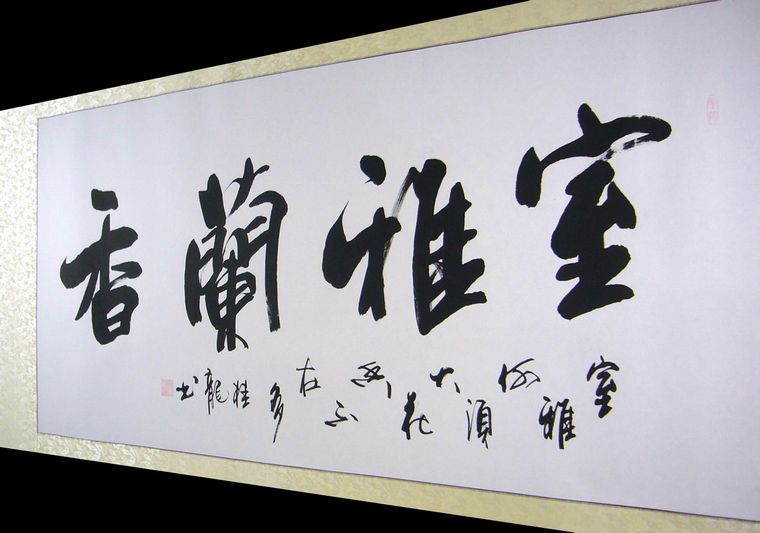 室雅蘭香
室雅何須大花香不在多桂龍书